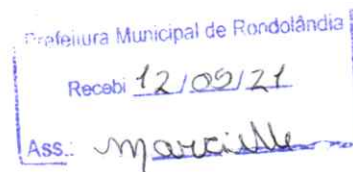 Prefeitura Municipal de Rondolândia
Recebi 12/09/21
Ass.: Marcielle